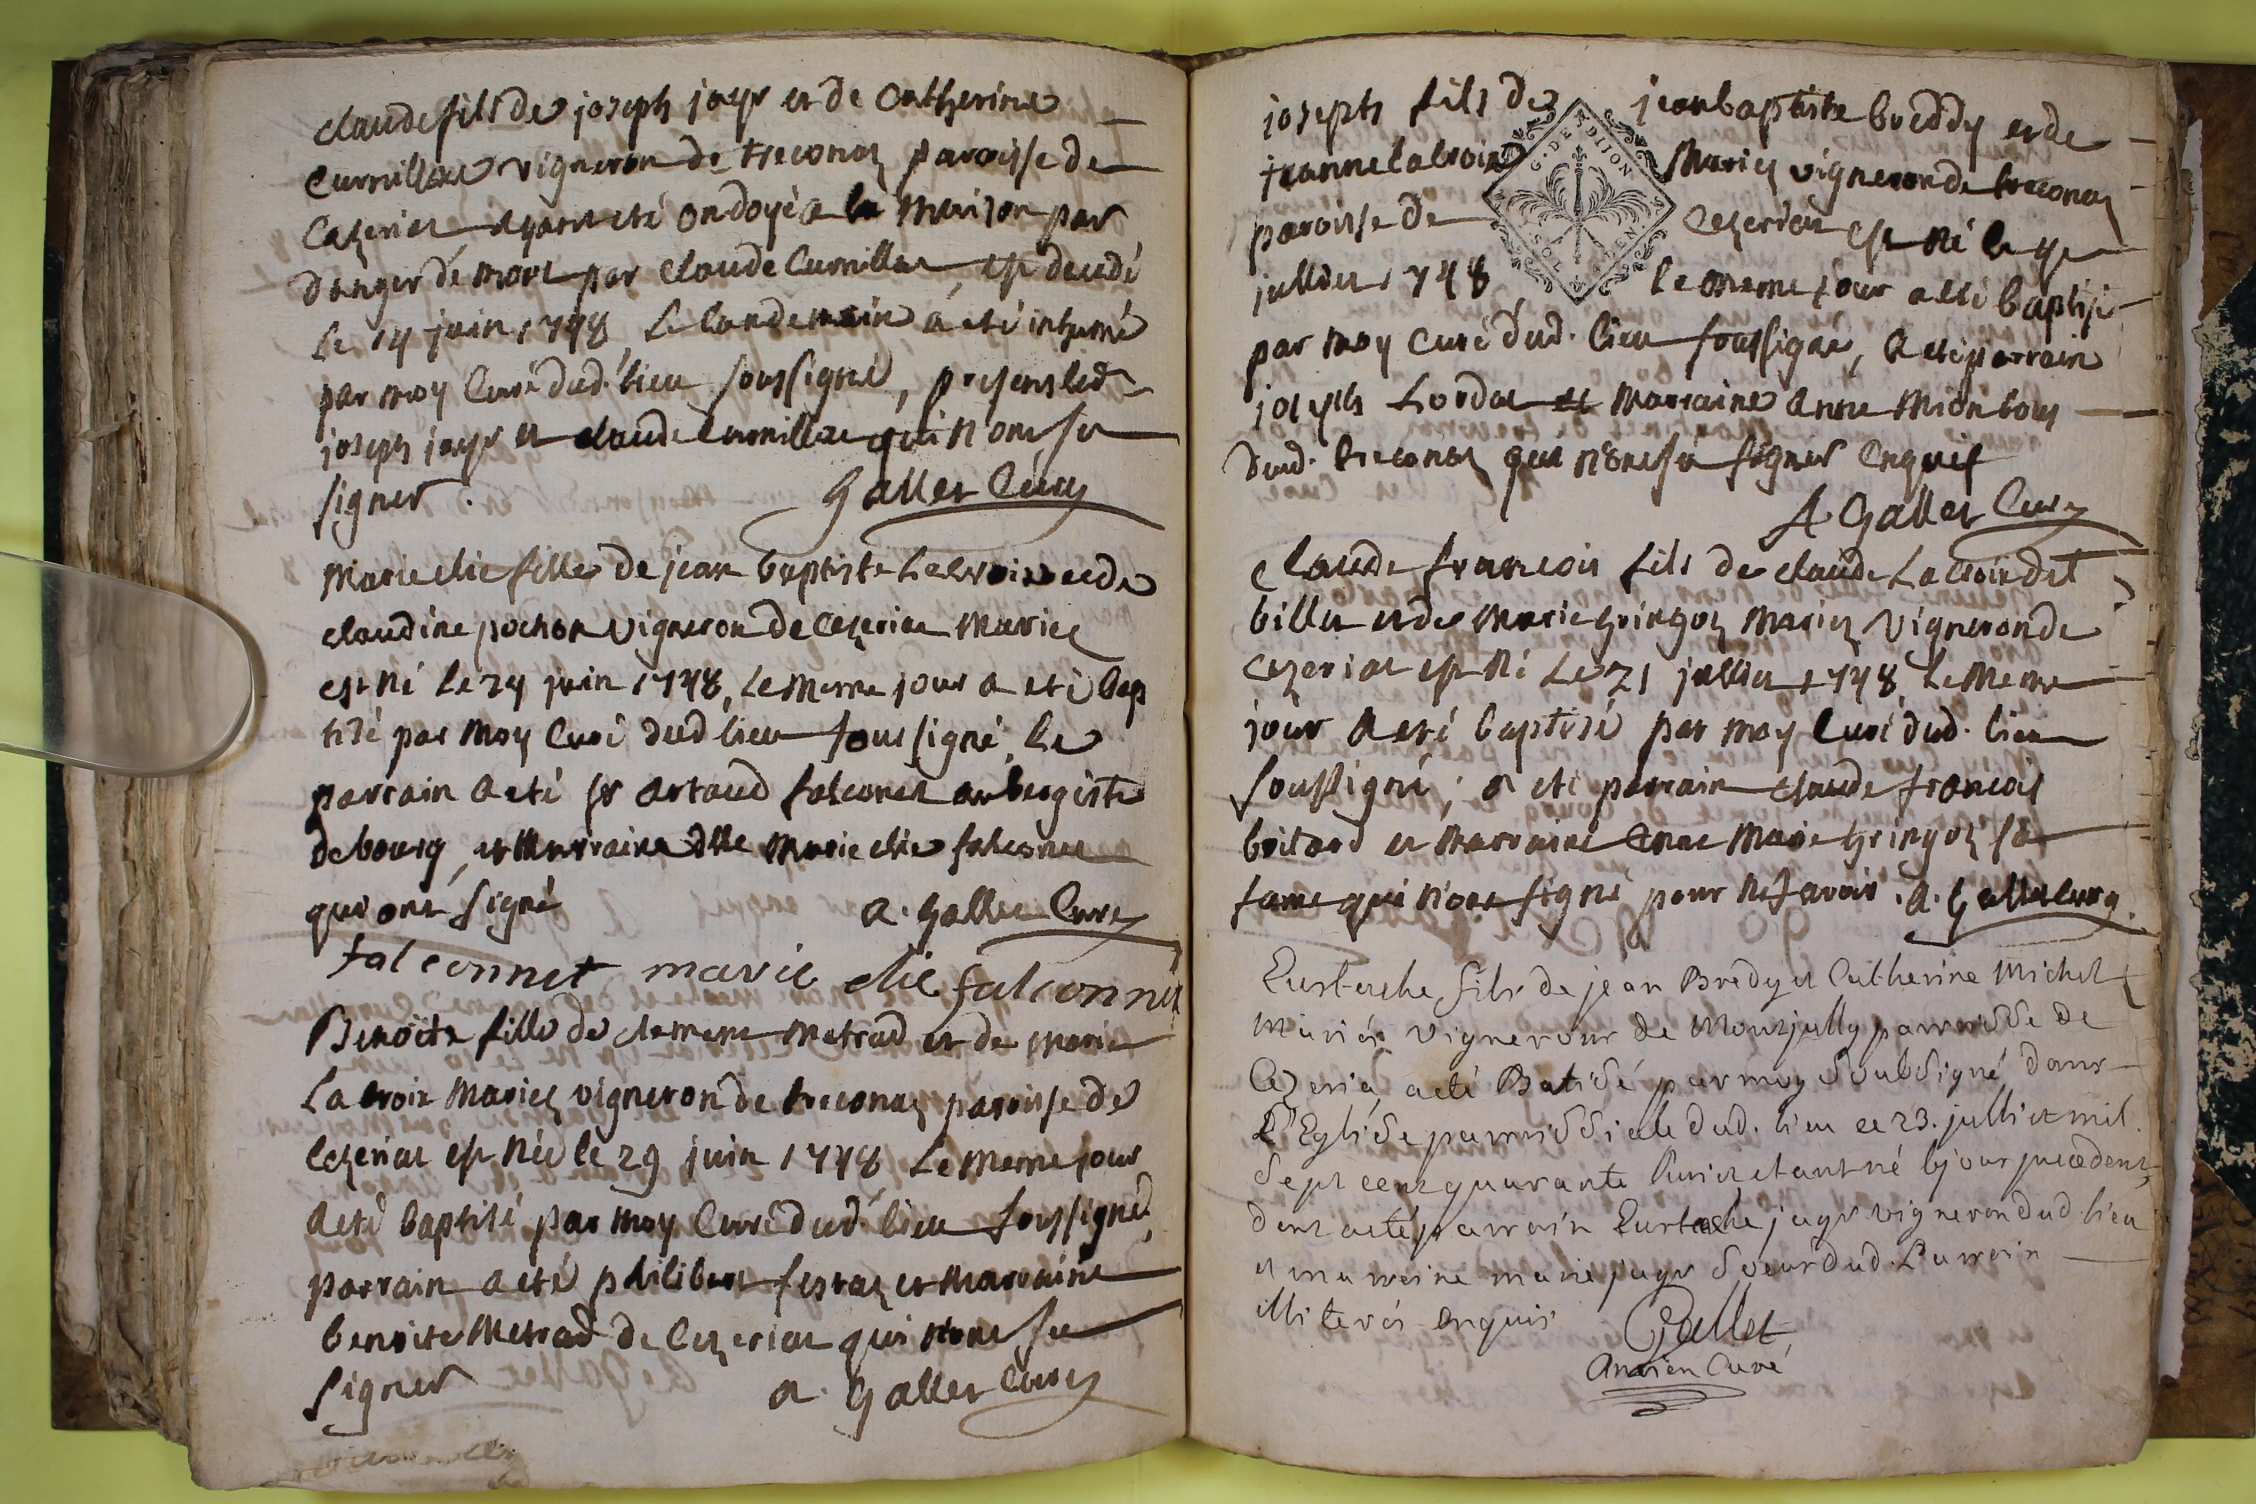 claude fils de joseph jayr et de Catherine
Curnillon vigneron de treconaz paroisse de
Cezeriat ayant eté ondoyé a la maison par
danger de mort par claude Curnillon, est decedé
le 14 juin 1748 Le landemain a eté inhumé
par moy Curé dud. lieu soussigné, presens led.
joseph jayr et claude Curnillon qui n'ont su
signer. Gallet Curé
Marie elie fille de jean baptiste Lacroix et de
claudine pochon vigneron de Cezeriat Mariez
est né le 24 juin 1748, le meme jour a eté bap
tisé par moy Curé dud lieu soussigné, le
parrain a eté sr artaud falconet aubergiste
de bourg, et Marraine dlle Marie elie falconet
qui ont signé a. Gallet Curé
falconnet marie elie falconnet
Benoite fille de clement Metrad et de Marie
Lacroix Mariez vigneron de treconaz paroisse de
Cezeriat est Née le 29 juin 1748 Le meme jour
a eté baptisé par moy Curé dud. lieu soussigné,
parrain a eté philibert festaz et Marraine
benoite Metrad de Cezeriat qui n'ont su
signer a. Gallet Curé
joseph fils de jean baptiste breddy et de
jeanne Lacroix Mariez vigneron de treconaz
paroisse de Cezeriat est Né le 4e
juillet 1748 le meme jour a eté baptisé
G. DE DIJON
par moy Curé dud. lieu soussigné, a eté parrain
joseph Lordat et Marraine anne Mion tous
dud. treconaz qui n'ont su signer Enquis
A Gallet Curé
Claude francois fils de claude Lacroix dit
billet et de Marie gringoz Mariez Vigneron de
Cezeriat est Né Le 21 juillet 1748, le meme
jour a eté baptisé par moy Curé dud. lieu
soussigné; a eté parrain claude francois
boitard et Marraine Marie gringoz sa
fame qui n'ont signé pour ne savoir. A. Gallet Curé
Eustache fils de jean Bredy et Catherine Michel
Mariés vignerons de Montjully parroisse de
Cezeria, a eté Batisé par moy Soubsigné dans
L'Eglise parroissiale dud. lieu ce 23. julliet mil
Sept cent quarante huit etant né le jour precedent,
dont a eté parrain Eustache jayr vigneron dud. lieu
et marraine marie jayr Soeur dud. Parrain
illiterés enquis Gallet
Ancien Curé